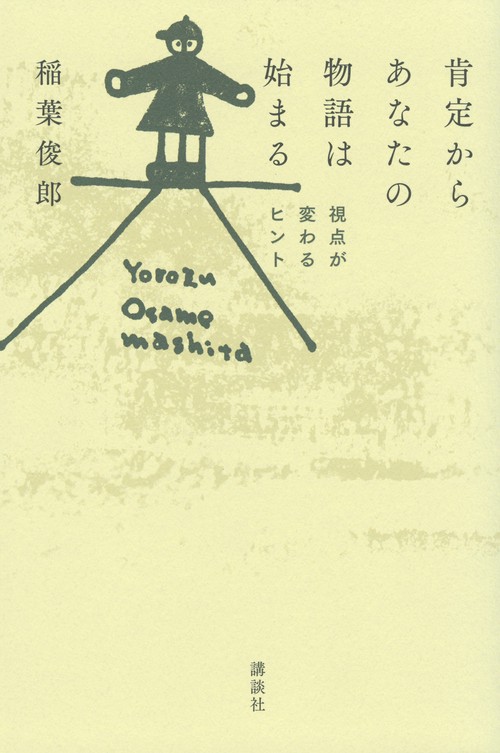 肯定から
あなたの
物語は
始まる
視点が
変わる
ヒント
稲葉俊郎
Yorozu
Osame
mashita
講談社